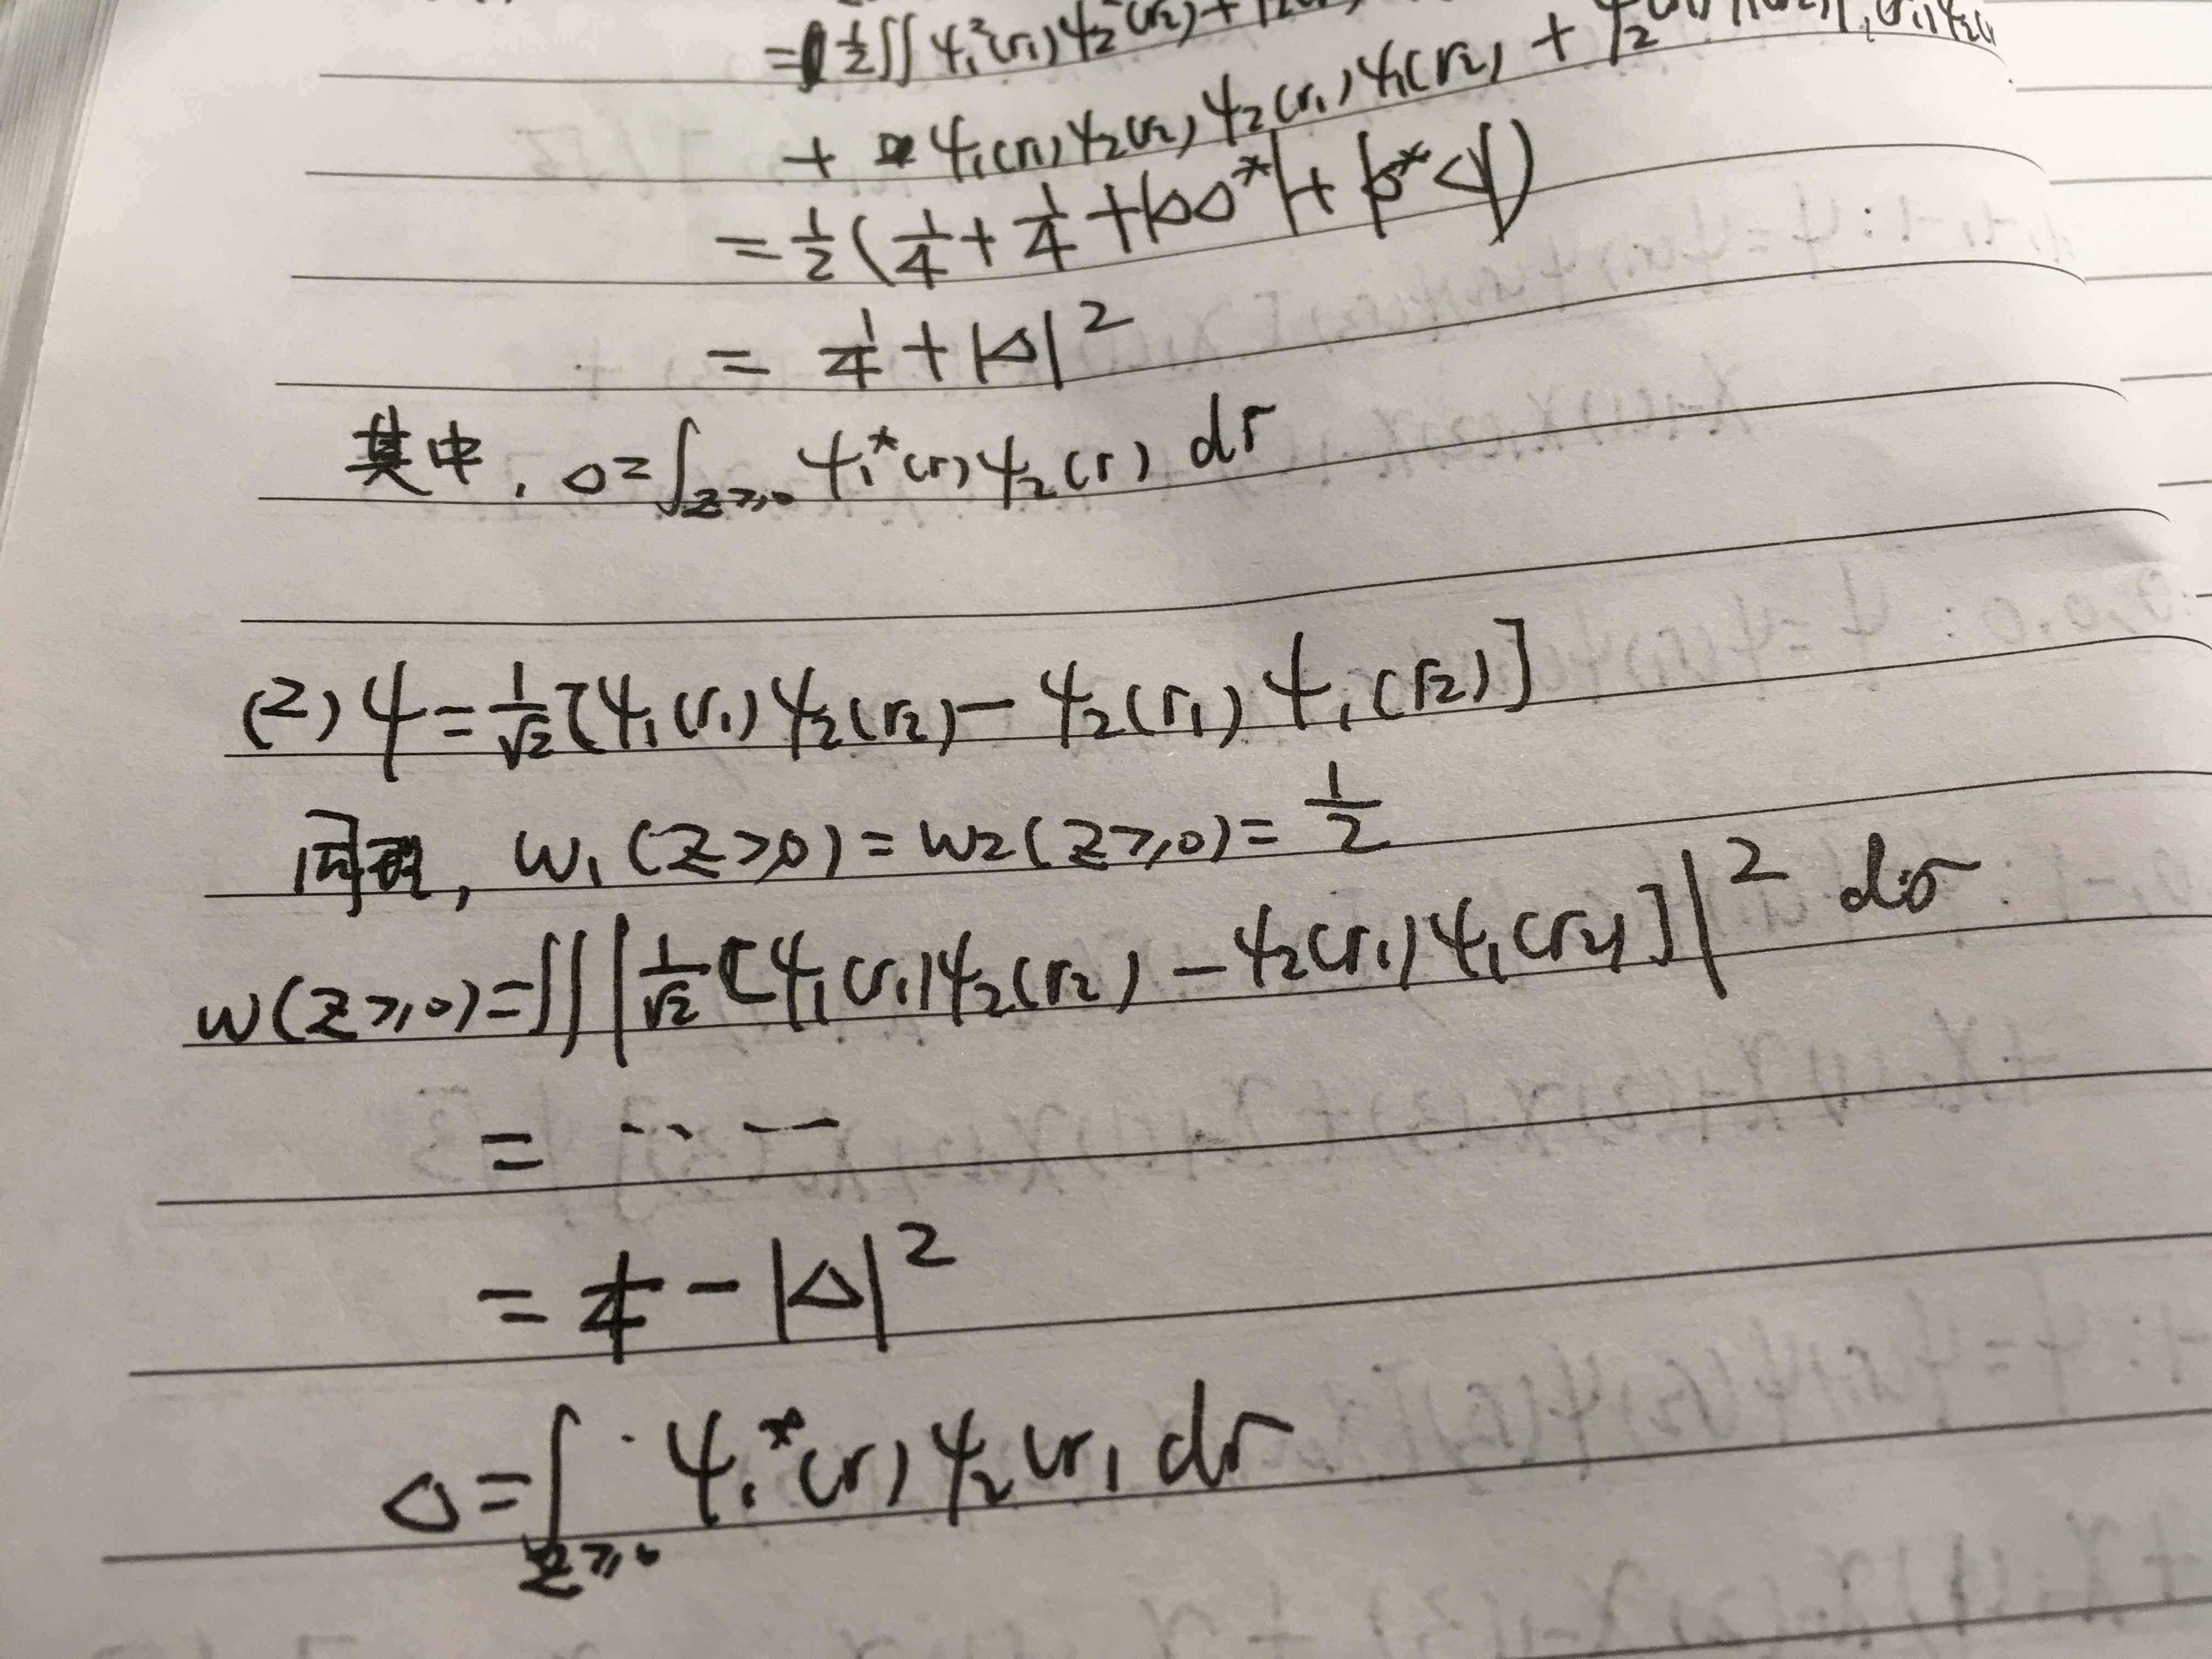 =½∬ψ₁²(r₁)ψ₂²(r₂)+
+ ψ₁(r₁)ψ₂(r₂)ψ₂(r₁)ψ₁(r₂) +
=½(¼+¼+|△△*|+|△*△|)
= ¼+|△|²
其中, △=∫_{z≥0} ψ₁*(r)ψ₂(r) dr
(2) ψ=1/√2[ψ₁(r₁)ψ₂(r₂)−ψ₂(r₁)ψ₁(r₂)]
同理, w₁(z≥0)=w₂(z≥0)=½
w(z≥0)=∬|1/√2[ψ₁(r₁)ψ₂(r₂)−ψ₂(r₁)ψ₁(r₂)]|² dσ
= ······
= ¼−|△|²
△=∫_{z≥0} ψ₁*(r)ψ₂(r) dr